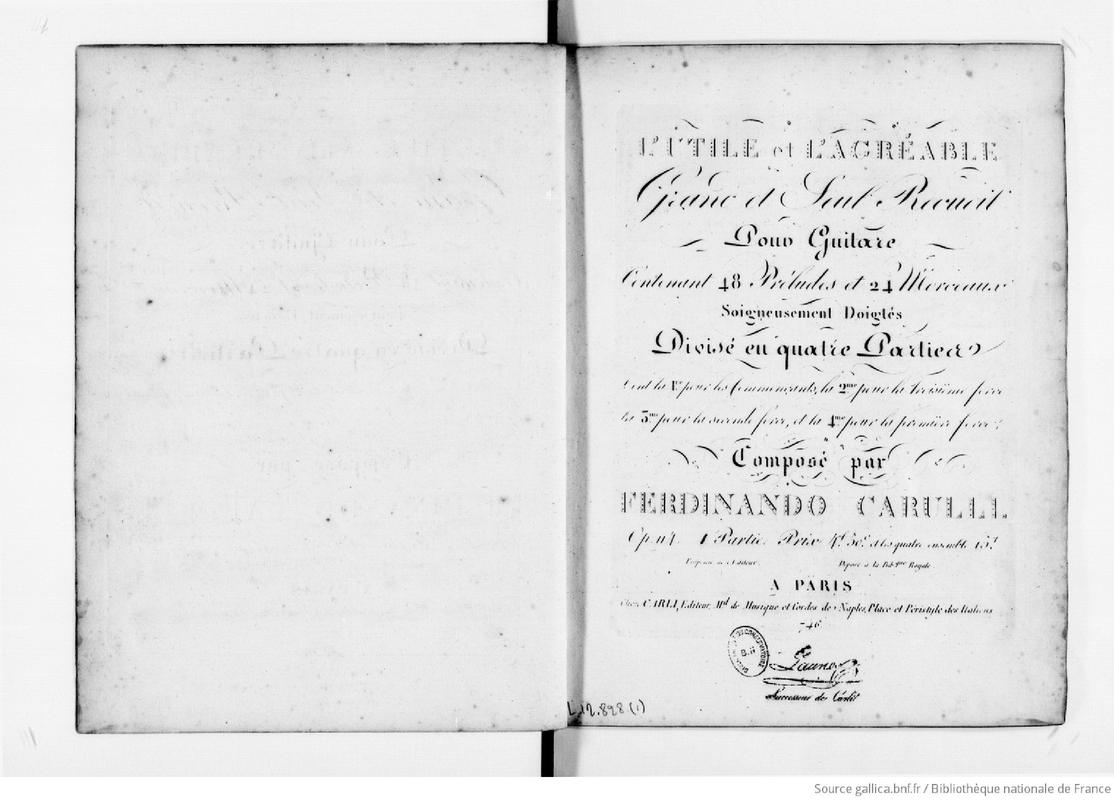 L'UTILE et L'AGRÉABLE
Grand et Seul Recueil
Pour Guitare
Contenant 48 Préludes et 24 Morceaux
Soigneusement Doigtés
Divisé en quatre Parties
Dont la 1re pour les Commençants, la 2me pour la troisième force
la 3me pour la seconde force, et la 4me pour la première force.
Composé par
FERDINANDO CARULLI.
Op. 114. 1 Partie. Prix 4f 50c et les quatre ensemble 15f
Propriété de l'Editeur. Déposé à la Bibque Royale
A PARIS
Chez CARLI, Editeur, Md de Musique et Cordes de Naples, Place et Péristyle des Italiens
746
Launer
Successeur de Carli
L.12.898 (1)
Source gallica.bnf.fr / Bibliothèque nationale de France